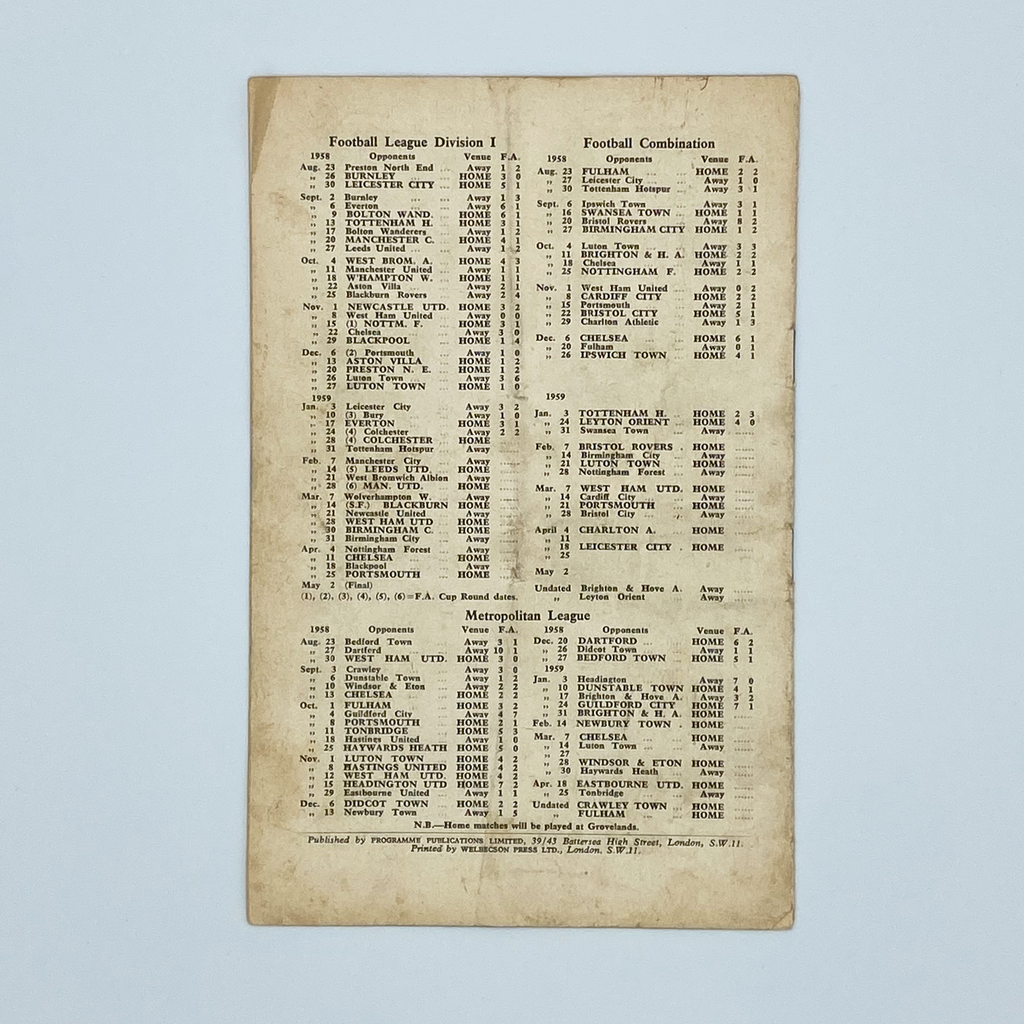 Football League Division I
1958 Opponents Venue F.A.
Aug. 23 Preston North End ... Away 1 2
„ 26 BURNLEY ... HOME 3 0
„ 30 LEICESTER CITY ... HOME 5 1
Sept. 2 Burnley ... Away 1 3
„ 6 Everton ... Away 6 1
„ 9 BOLTON WAND. HOME 6 1
„ 13 TOTTENHAM H. HOME 3 1
„ 17 Bolton Wanderers ... Away 1 2
„ 20 MANCHESTER C. HOME 4 1
„ 27 Leeds United ... Away 1 2
Oct. 4 WEST BROM. A. HOME 4 3
„ 11 Manchester United ... Away 1 1
„ 18 W'HAMPTON W. HOME 1 1
„ 22 Aston Villa ... Away 2 1
„ 25 Blackburn Rovers ... Away 2 4
Nov. 1 NEWCASTLE UTD. HOME 3 2
„ 8 West Ham United Away 0 0
„ 15 (1) NOTTM. F. HOME 3 1
„ 22 Chelsea ... Away 3 0
„ 29 BLACKPOOL ... HOME 1 4
Dec. 6 (2) Portsmouth ... Away 1 0
„ 13 ASTON VILLA ... HOME 1 2
„ 20 PRESTON N. E. ... HOME 1 2
„ 26 Luton Town ... Away 3 6
„ 27 LUTON TOWN ... HOME 1 0
1959
Jan. 3 Leicester City ... Away 3 2
„ 10 (3) Bury ... Away 1 0
„ 17 EVERTON ... HOME 3 1
„ 24 (4) Colchester ... Away 2 2
„ 28 (4) COLCHESTER ... HOME
„ 31 Tottenham Hotspur ... Away ......
Feb. 7 Manchester City ... Away ......
„ 14 (5) LEEDS UTD. HOME ......
„ 21 West Bromwich Albion Away ......
„ 28 (6) MAN. UTD. ... HOME ......
Mar. 7 Wolverhampton W. ... Away ......
„ 14 (S.F.) BLACKBURN HOME ......
„ 21 Newcastle United ... Away ......
„ 28 WEST HAM UTD HOME ......
„ 30 BIRMINGHAM C. HOME ......
„ 31 Birmingham City ... Away ......
Apr. 4 Nottingham Forest ... Away ......
„ 11 CHELSEA ... HOME ......
„ 18 Blackpool ... Away ......
„ 25 PORTSMOUTH ... HOME ......
May 2 (Final)
(1), (2), (3), (4), (5), (6)=F.A. Cup Round dates.
Football Combination
1958 Opponents Venue F.A.
Aug. 23 FULHAM ... HOME 2 2
„ 27 Leicester City ... Away 1 0
„ 30 Tottenham Hotspur ... Away 3 1
Sept. 6 Ipswich Town ... Away 3 1
„ 16 SWANSEA TOWN ... HOME 1 1
„ 20 Bristol Rovers ... Away 8 2
„ 27 BIRMINGHAM CITY HOME 1 2
Oct. 4 Luton Town ... Away 3 3
„ 11 BRIGHTON & H. A. HOME 2 2
„ 18 Chelsea ... Away 1 1
„ 25 NOTTINGHAM F. HOME 2 2
Nov. 1 West Ham United ... Away 0 2
„ 8 CARDIFF CITY ... HOME 2 2
„ 15 Portsmouth ... Away 2 1
„ 22 BRISTOL CITY ... HOME 5 1
„ 29 Charlton Athletic ... Away 1 3
Dec. 6 CHELSEA ... HOME 6 1
„ 20 Fulham ... Away 0 1
„ 26 IPSWICH TOWN ... HOME 4 1
1959
Jan. 3 TOTTENHAM H. ... HOME 2 3
„ 24 LEYTON ORIENT ... HOME 4 0
„ 31 Swansea Town ... Away ......
Feb. 7 BRISTOL ROVERS . HOME ......
„ 14 Birmingham City ... Away ......
„ 21 LUTON TOWN ... HOME ......
„ 28 Nottingham Forest ... Away ......
Mar. 7 WEST HAM UTD. HOME ......
„ 14 Cardiff City ... Away ......
„ 21 PORTSMOUTH ... HOME ......
„ 28 Bristol City ... Away ......
April 4 CHARLTON A. ... HOME ......
„ 11
„ 18 LEICESTER CITY . HOME ......
„ 25
May 2
Undated Brighton & Hove A. Away ......
„ Leyton Orient ... Away ......
Metropolitan League
1958 Opponents Venue F.A.
Aug. 23 Bedford Town ... Away 3 1
„ 27 Dartferd ... Away 10 1
„ 30 WEST HAM UTD. HOME 3 0
Sept. 3 Crawley ... Away 3 0
„ 6 Dunstable Town ... Away 1 2
„ 10 Windsor & Eton ... Away 2 2
„ 13 CHELSEA ... HOME 2 2
Oct. 1 FULHAM ... HOME 3 2
„ 4 Guildford City ... Away 4 7
„ 8 PORTSMOUTH ... HOME 2 1
„ 11 TONBRIDGE ... HOME 5 3
„ 18 Hastings United ... Away 1 0
„ 25 HAYWARDS HEATH HOME 5 0
Nov. 1 LUTON TOWN ... HOME 4 2
„ 8 HASTINGS UNITED HOME 4 2
„ 12 WEST HAM UTD. HOME 4 2
„ 15 HEADINGTON UTD HOME 7 2
„ 29 Eastbourne United ... Away 1 1
Dec. 6 DIDCOT TOWN ... HOME 2 2
„ 13 Newbury Town ... Away 1 5
1958 Opponents Venue F.A.
Dec. 20 DARTFORD ... HOME 6 2
„ 26 Didcot Town ... Away 1 1
„ 27 BEDFORD TOWN ... HOME 5 1
1959
Jan. 3 Headington ... Away 7 0
„ 10 DUNSTABLE TOWN HOME 4 1
„ 17 Brighton & Hove A. Away 3 2
„ 24 GUILDFORD CITY HOME 7 1
„ 31 BRIGHTON & H. A. HOME ......
Feb. 14 NEWBURY TOWN . HOME ......
Mar. 7 CHELSEA ... HOME ......
„ 14 Luton Town ... Away ......
„ 27
„ 28 WINDSOR & ETON HOME ......
„ 30 Haywards Heath ... Away ......
Apr. 18 EASTBOURNE UTD. HOME ......
„ 25 Tonbridge ... Away ......
Undated CRAWLEY TOWN ... HOME ......
„ FULHAM ... HOME ......
N.B.—Home matches will be played at Grovelands.
Published by PROGRAMME PUBLICATIONS LIMITED, 39/43 Battersea High Street, London, S.W.11.
Printed by WELBECSON PRESS LTD., London. S.W.11.